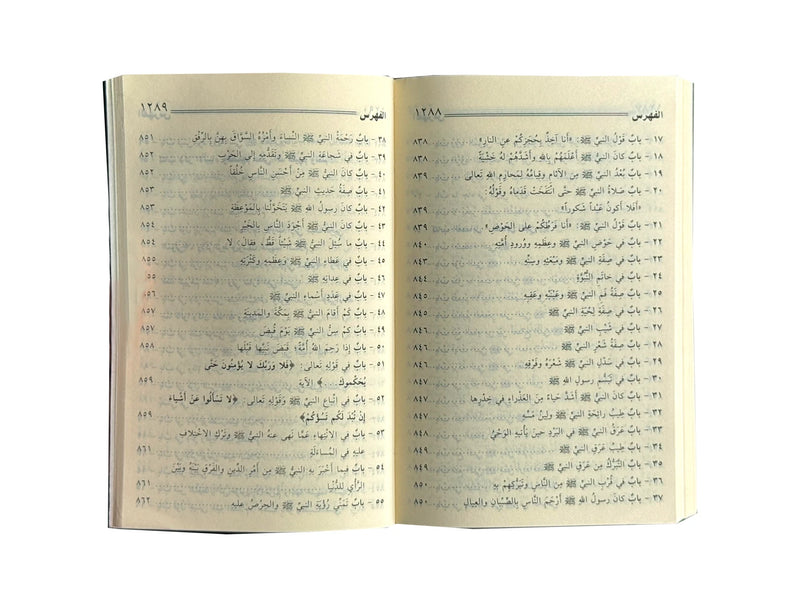 الفهرس ١٢٨٨
١٧ - بابُ قَوْلُ النبيِّ ﷺ: «أنا آخِذٌ بِحُجَزِكُمْ عنِ النارِ» ٨٣٨
١٨ - بابُ كانَ النبيُّ ﷺ أَعْلَمَهُمْ باللهِ وأَشَدَّهُمْ لهُ خَشْيَةً ٨٣٨
١٩ - بابُ بُعْدُ النبيِّ ﷺ مِنَ الآثامِ وقيامُهُ لمَحارِمِ اللهِ تعالى ٨٣٩
٢٠ - بابُ صَلاةُ النبيِّ ﷺ حتَّى انْتَفَخَتْ قدَماهُ وقَوْلُهُ:
«أفَلا أكونُ عَبْداً شَكوراً» ٨٣٩
٢١ - بابُ قَوْلُ النبيِّ ﷺ: «أنا فَرَطُكُمْ على الحَوْضِ» ٨٣٩
٢٢ - بابُ في حَوْضِ النبيِّ ﷺ وعِظَمِهِ وورودِ أُمَّتِهِ ٨٤٠
٢٣ - بابُ في صِفَةِ النبيِّ ﷺ ومَبْعَثِهِ وسِنِّهِ ٨٤٣
٢٤ - بابُ في خاتَمِ النُّبُوَّةِ ٨٤٤
٢٥ - بابُ صِفَةُ فَمِ النبيِّ ﷺ وعَيْنَيْهِ وعَقِبِهِ ٨٤٥
٢٦ - بابُ صِفَةُ لِحْيَةِ النبيِّ ﷺ ٨٤٥
٢٧ - بابُ في شَيْبِ النبيِّ ﷺ ٨٤٦
٢٨ - بابُ صِفَةُ شَعْرِ النبيِّ ﷺ ٨٤٦
٢٩ - بابُ في سَدْلِ النبيِّ ﷺ شَعْرَهُ وفَرْقِهِ ٨٤٦
٣٠ - بابُ في تَبَسُّمِ رسولِ اللهِ ﷺ ٨٤٧
٣١ - بابُ كانَ النبيُّ ﷺ أَشَدَّ حَياءً مِنَ العَذْراءِ في خِدْرِها ٨٤٧
٣٢ - بابُ طِيبُ رائِحَةِ النبيِّ ﷺ ولِينُ مَسِّهِ ٨٤٧
٣٣ - بابُ عَرَقُ النبيِّ ﷺ في البَرْدِ حينَ يأْتيهِ الوَحْيُ ٨٤٨
٣٤ - بابُ طِيبُ عَرَقِ النبيِّ ﷺ ٨٤٩
٣٥ - بابُ التَّبَرُّكُ مِنْ عَرَقِ النبيِّ ﷺ ٨٤٩
٣٦ - بابُ في قُرْبِ النبيِّ ﷺ مِنَ الناسِ وتَبَرُّكِهِمْ بِهِ ٨٥٠
٣٧ - بابُ كانَ رسولُ اللهِ ﷺ أَرْحَمَ الناسِ بالصِّبْيانِ والعِيالِ ٨٥٠
الفهرس ١٢٨٩
٣٨ - بابُ رَحْمَةُ النبيِّ ﷺ النِّساءَ وأَمْرُهُ السَّوَّاقَ بِهِنَّ بالرِّفْقِ ٨٥١
٣٩ - بابُ في شَجاعَةِ النبيِّ ﷺ وتَقَدُّمِهِ إلى الحَرْبِ ٨٥٢
٤٠ - بابُ كانَ النبيُّ ﷺ مِنْ أَحْسَنِ الناسِ خُلُقاً ٨٥٢
٤١ - بابُ صِفَةُ حَديثِ النبيِّ ﷺ ٨٥٣
٤٢ - بابُ كانَ رسولُ اللهِ ﷺ يَتَخَوَّلُنا بِالمَوْعِظَةِ ٨٥٣
٤٣ - بابُ كانَ النبيُّ ﷺ أَجْوَدَ الناسِ بالخَيْرِ ٨٥٤
٤٤ - بابُ ما سُئِلَ النبيُّ ﷺ شَيْئاً قَطُّ، فقالَ: لا ٨٥٤
٤٥ - بابُ في عَطاءِ النبيِّ ﷺ وعِظَمِهِ وكَثْرَتِهِ
٤٦ - بابُ في عِداتِهِ ﷺ
٤٧ - بابُ في عَدَدِ أَسْماءِ النبيِّ ﷺ
٤٨ - بابُ كَمْ أقامَ النبيُّ ﷺ بِمَكَّةَ والمَدينَةِ
٤٩ - بابُ كَمْ سِنُّ النبيِّ ﷺ يَوْمَ قُبِضَ
٥٠ - بابُ إذا رَحِمَ اللهُ أُمَّةً؛ قَبَضَ نَبِيَّها قَبْلَها ٨٥٨
٥١ - بابُ في قولِهِ تعالى: ﴿فلا وَرَبِّكَ لا يُؤْمِنُونَ حَتَّى
يُحَكِّموكَ...﴾ الآيَةِ ٨٥٩
٥٢ - بابُ في اتِّباعِ النبيِّ ﷺ وقَوْلِهِ تعالى: ﴿لا تَسْأَلُوا عَنْ أَشْياءَ
إنْ تُبْدَ لَكُم تَسُؤْكُمْ﴾ ٨٥٩
٥٣ - بابُ في الانْتِهاءِ عَمَّا نَهى عنهُ النبيُّ ﷺ وتَرْكِ الاخْتِلافِ
عليهِ في المُساءَلَةِ ٨٦١
٥٤ - بابُ فيما أَخْبَرَ بهِ النبيُّ ﷺ مِنْ أَمْرِ الدِّينِ والفَرْقِ بَيْنَهُ وبَيْنَ
الرَّأْيِ للدُّنْيا ٨٦١
٥٥ - بابُ تَمَنِّي رُؤْيَةِ النبيِّ ﷺ والحِرْصِ عليهِ ٨٦٢